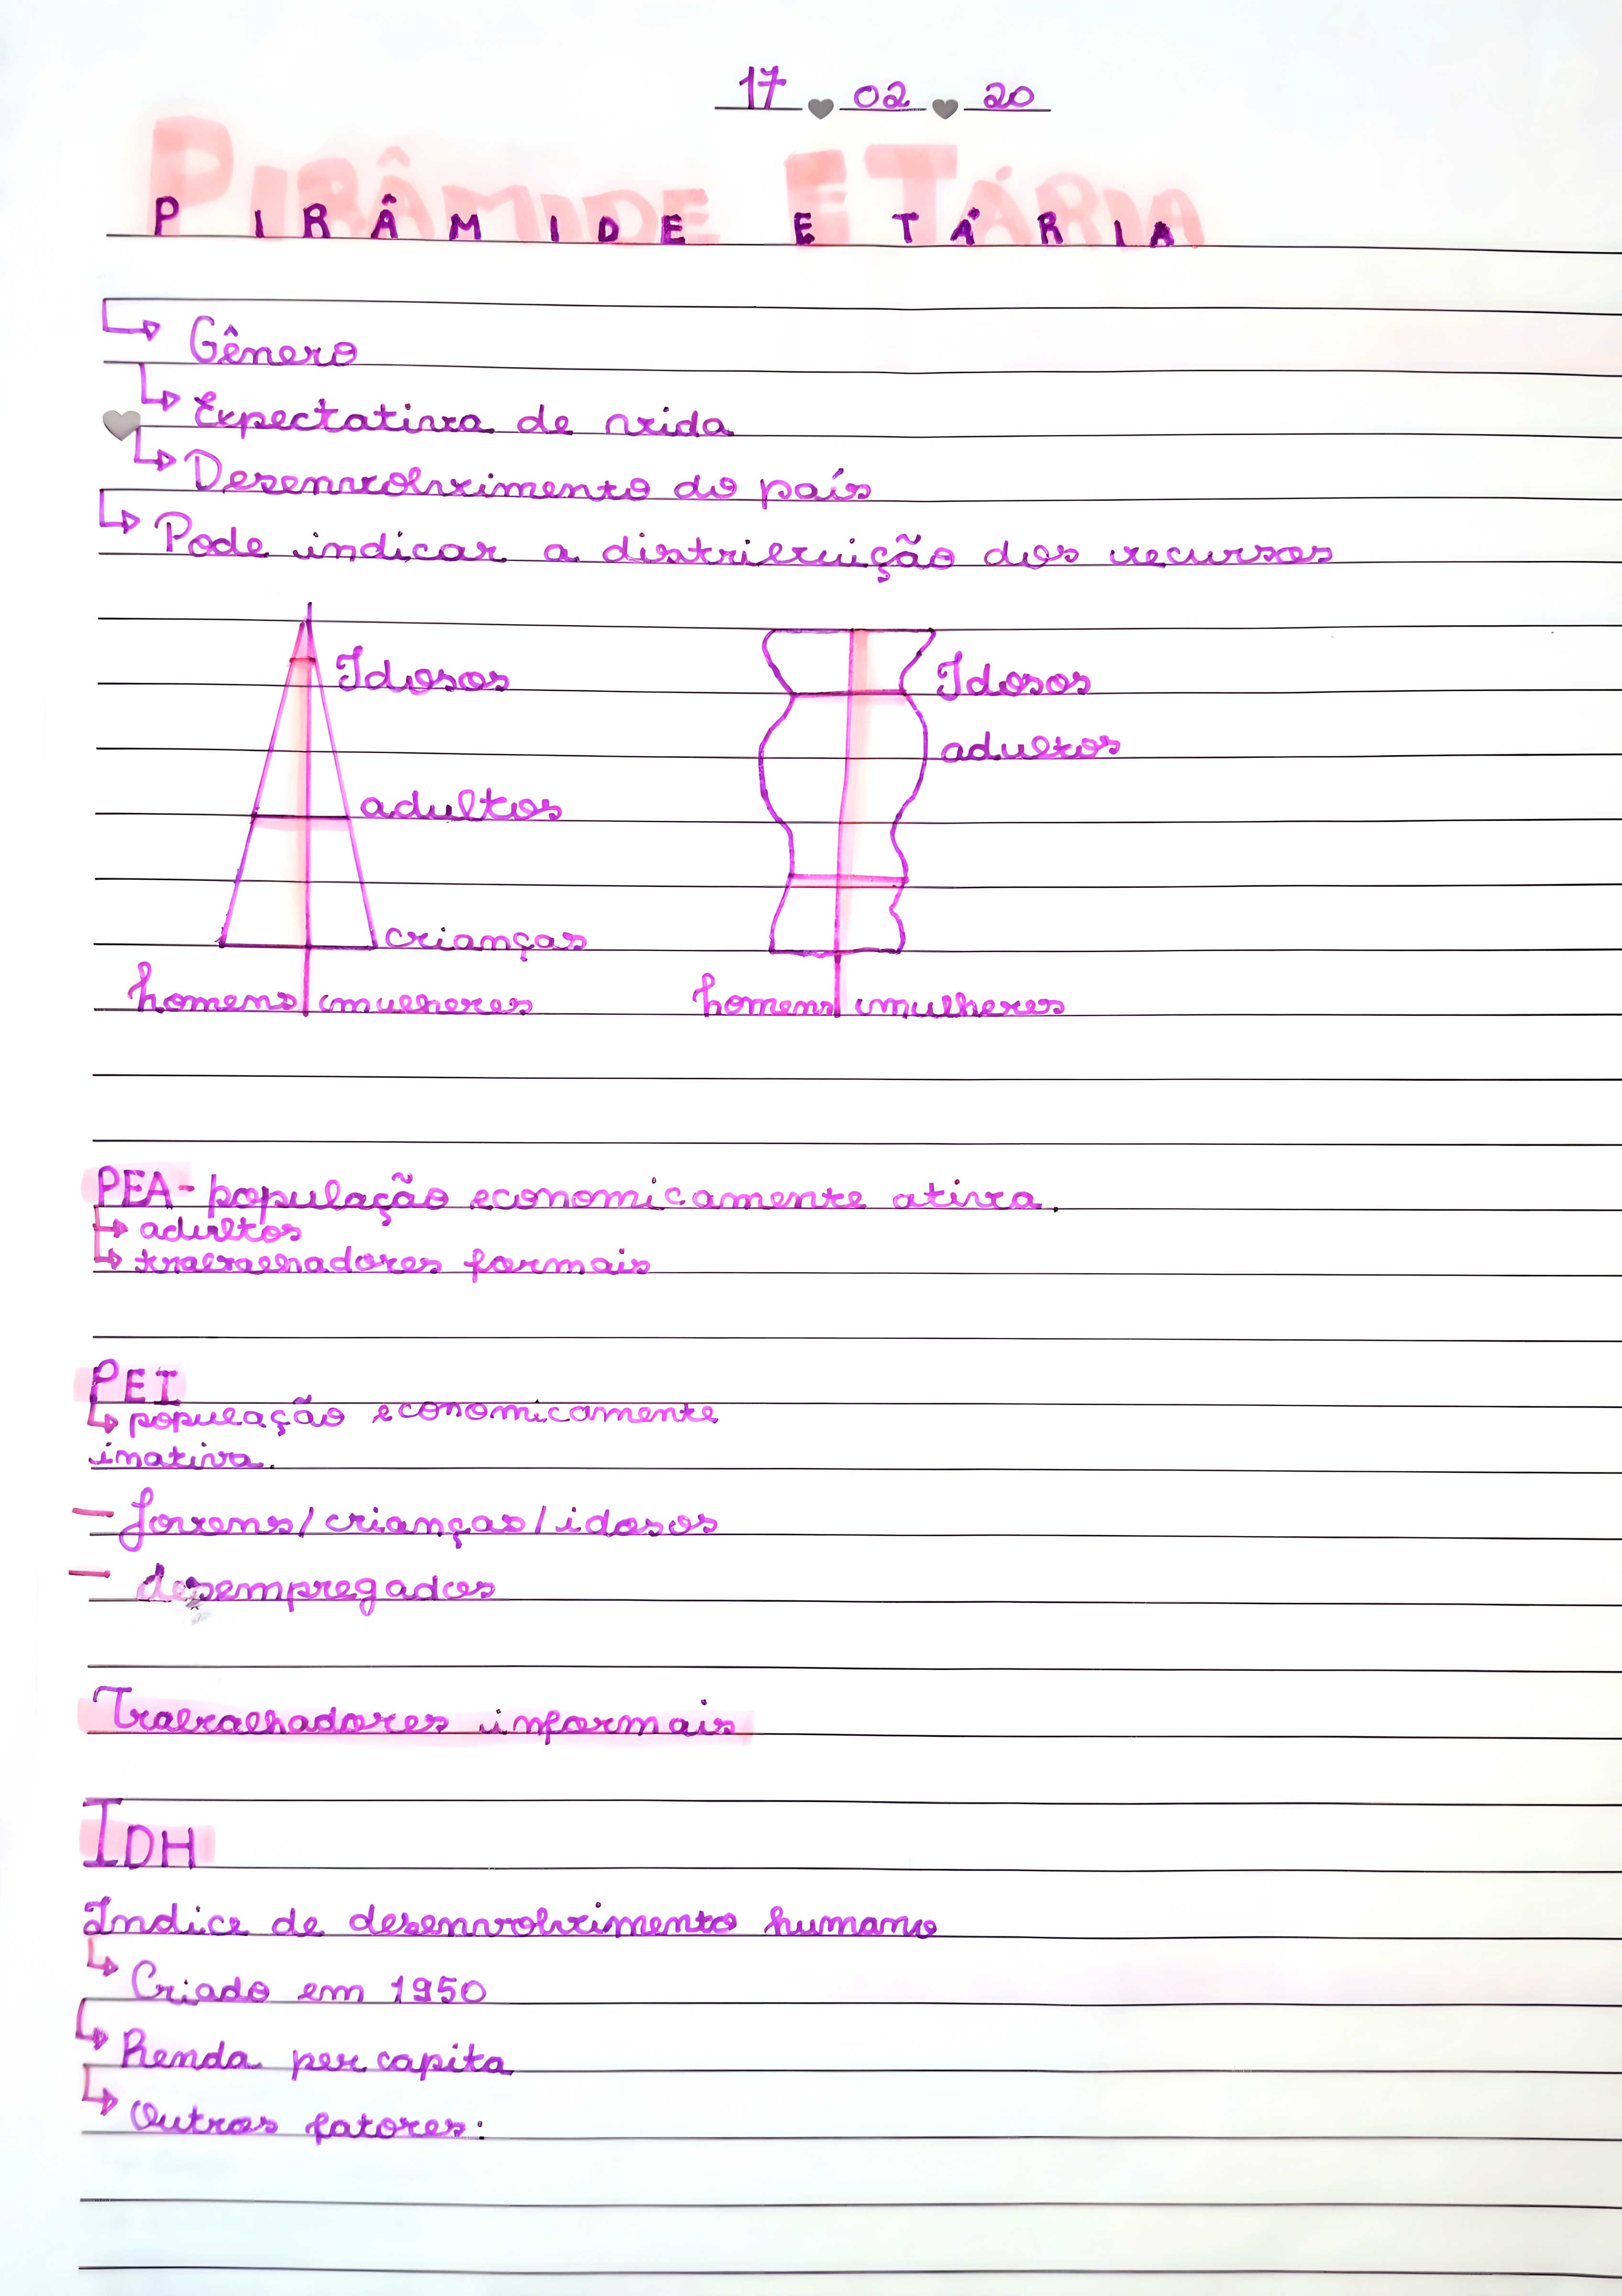 17 02 20
PIRÂMIDE ETÁRIA
Gênero
Expectativa de vida
Desenvolvimento do país
Pode indicar a distribuição dos recursos
Idosos
adultos
crianças
homens mulheres
Idosos
adultos
homens mulheres
PEA - população economicamente ativa.
adultos
trabalhadores formais
PEI
população economicamente
inativa.
- jovens/crianças/idosos
- desempregados
Trabalhadores informais
IDH
Índice de desenvolvimento humano
Criado em 1950
Renda per capita
Outros fatores: